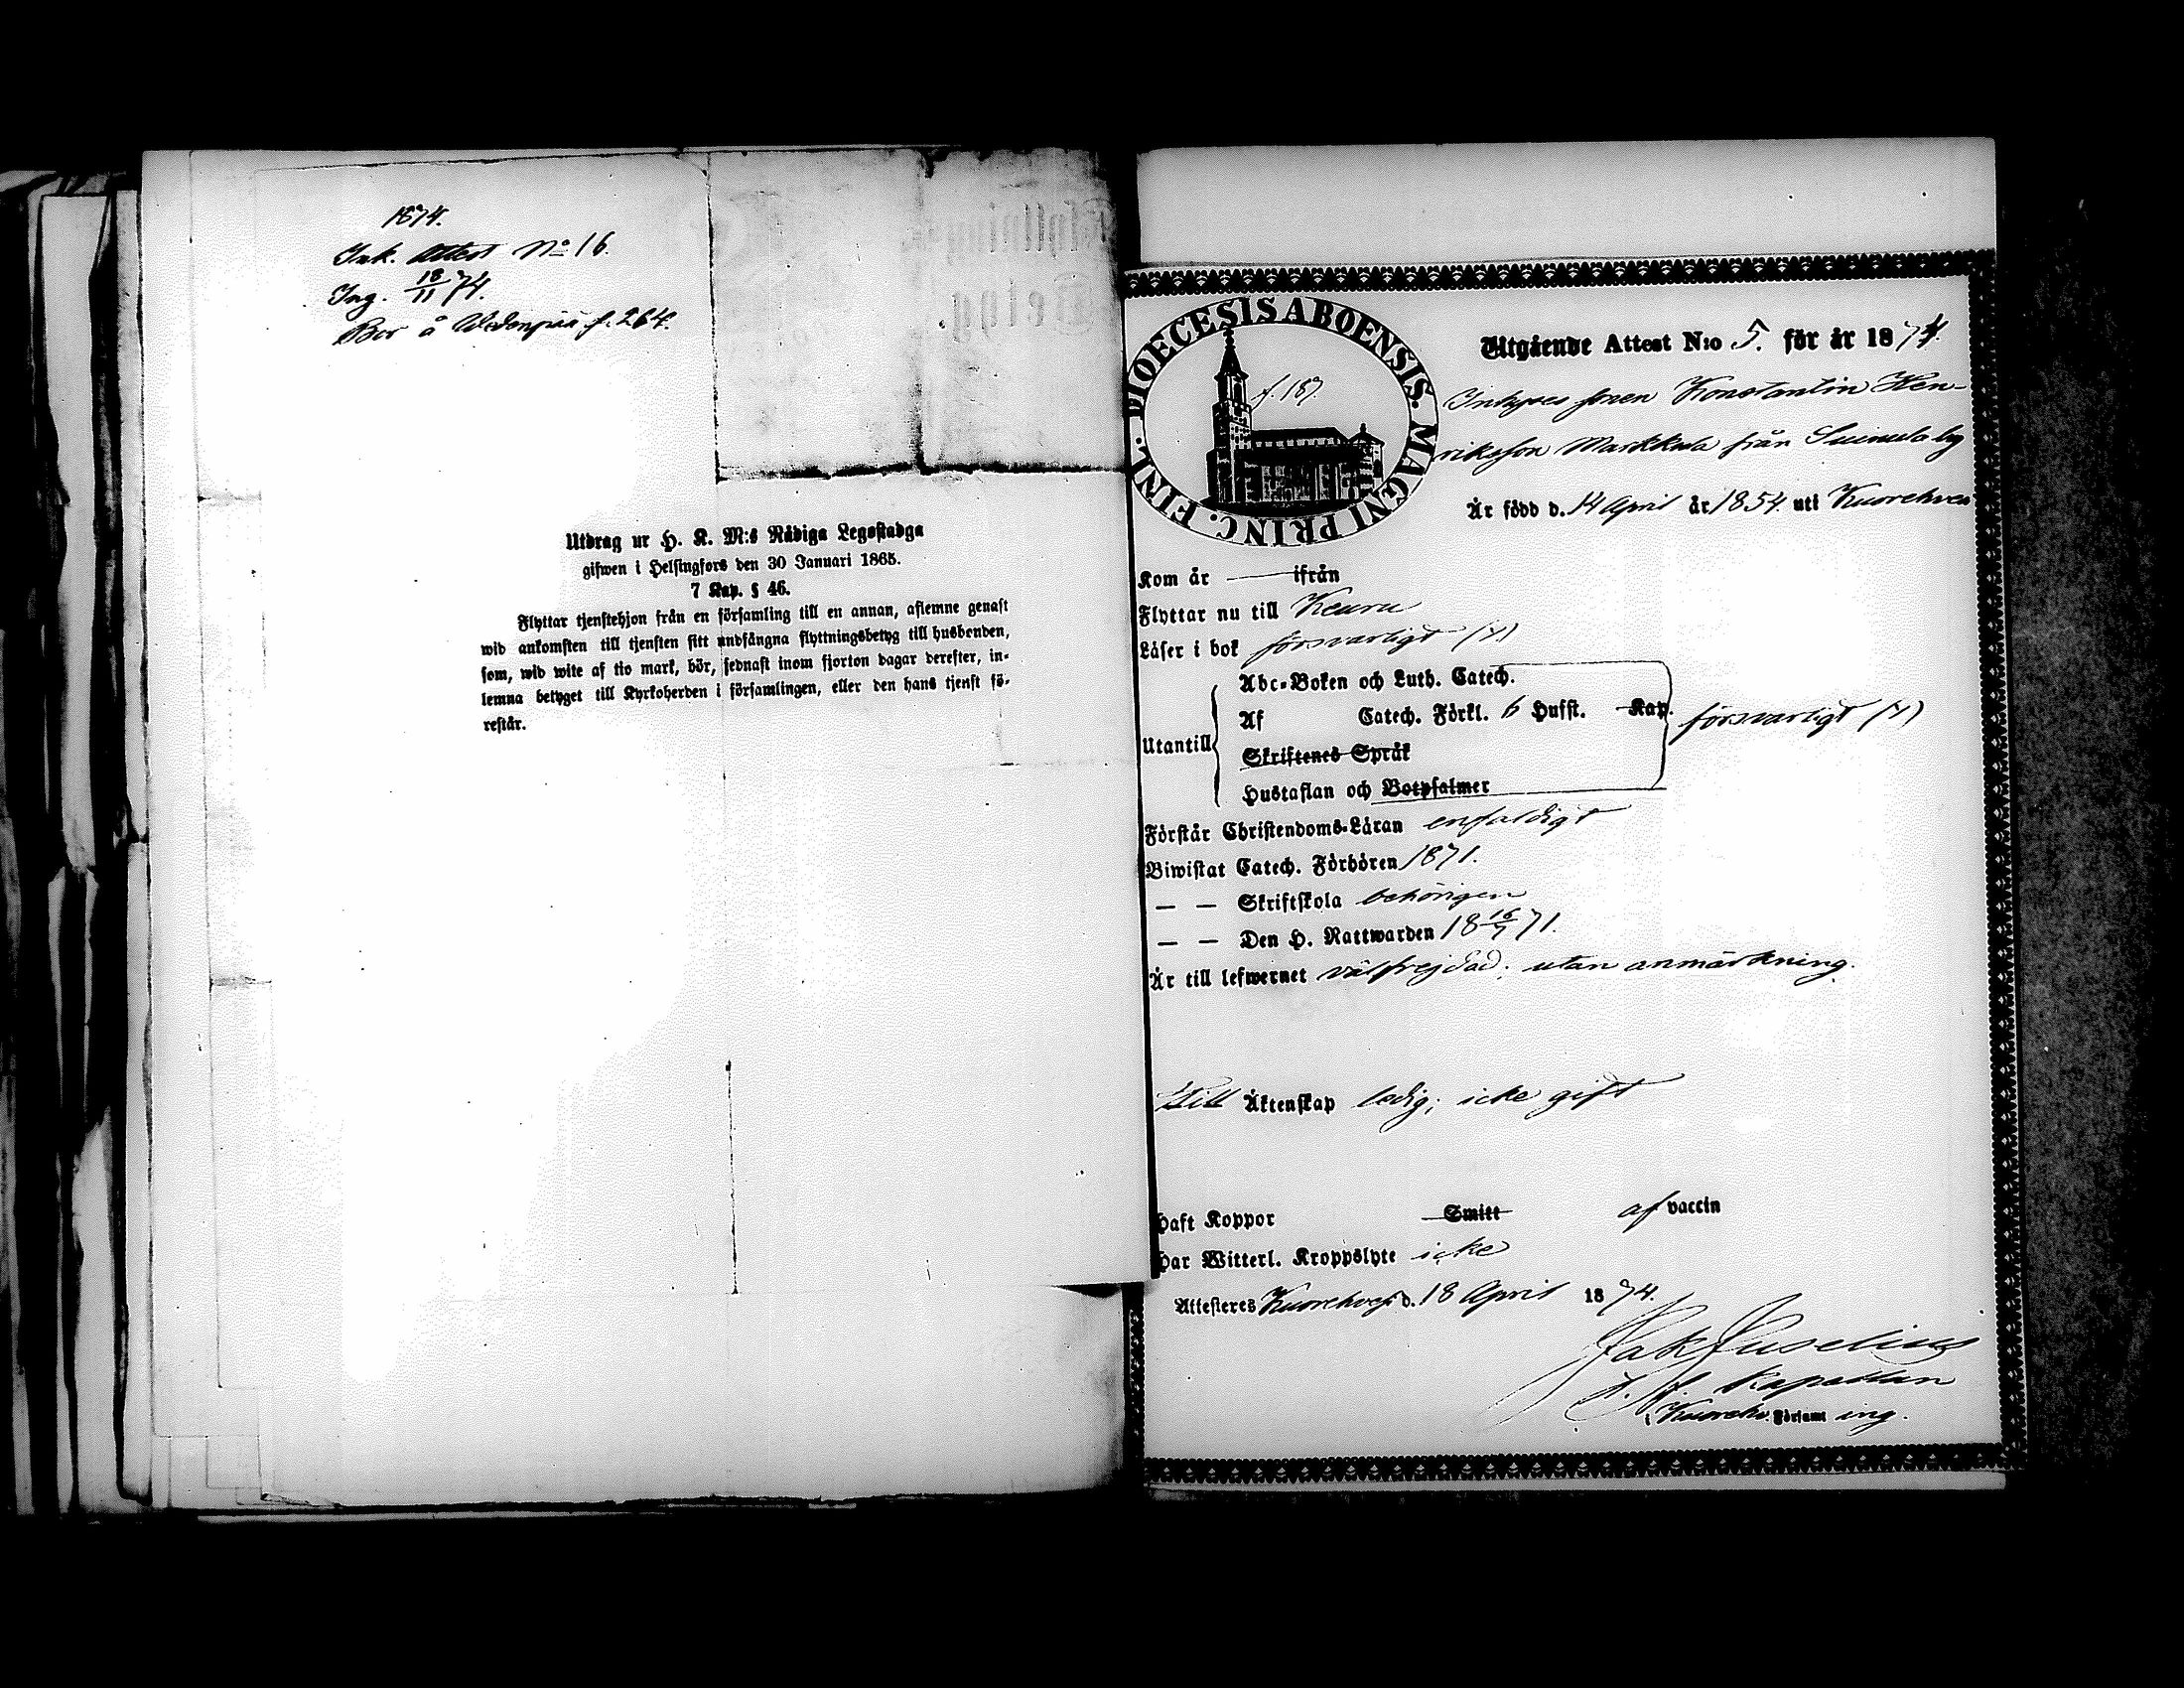 1874.
Ink. Attest No 16.
Ing. 18/11 74.
Bor å Wedenpää f. 264.
Utdrag ur H. K. M:s Nådiga Legostadga
gifwen i Helsingfors den 30 Januari 1865.
7 Kap. § 46.
Flyttar tjenstehjon från en församling till en annan, aflemne genast
wid ankomsten till tjensten sitt undfångna flyttningsbetyg till husbonden,
som, wid wite af tio mark, bör, sednast inom fjorton dagar derefter, in-
lemna betyget till Kyrkoherden i församlingen, eller den hans tjenst fö-
restår.
DIOECESIS ABOENSIS. MAGNI PRINC. FINL.
f. 187.
Utgående Attest N:o 5. för år 1874.
Inhyses sonen Konstantin Hen-
riksson Markkula från Suinula by
Är född d. 14 April år 1854. uti Kuorehvesi
Kom år — ifrån
Flyttar nu till Keuru
Läser i bok försvarligt (Y.)
Abc-Boken och Luth. Catech.
Af Catech. Förkl. 6 Hufst. Kap. försvarligt (Y)
Utantill
Skriftenes Språk
Hustaflan och Botpsalmer
Förstår Christendoms-Läran enfaldigt
Biwistat Catech. Förhören 1871.
— — Skriftskola behörigen
— — Den H. Nattwarden 18 16/7 71.
Är till lefwernet välfrejdad; utan anmärkning.
Till Äktenskap ledig; icke gift
Haft Koppor Smitt af vaccin
Har Witterl. Kroppslyte icke
Attesteres Kuorehvesi d. 18 April 1874.
Jak Juselius
Kapellan
Kuoreh. Församl ing.